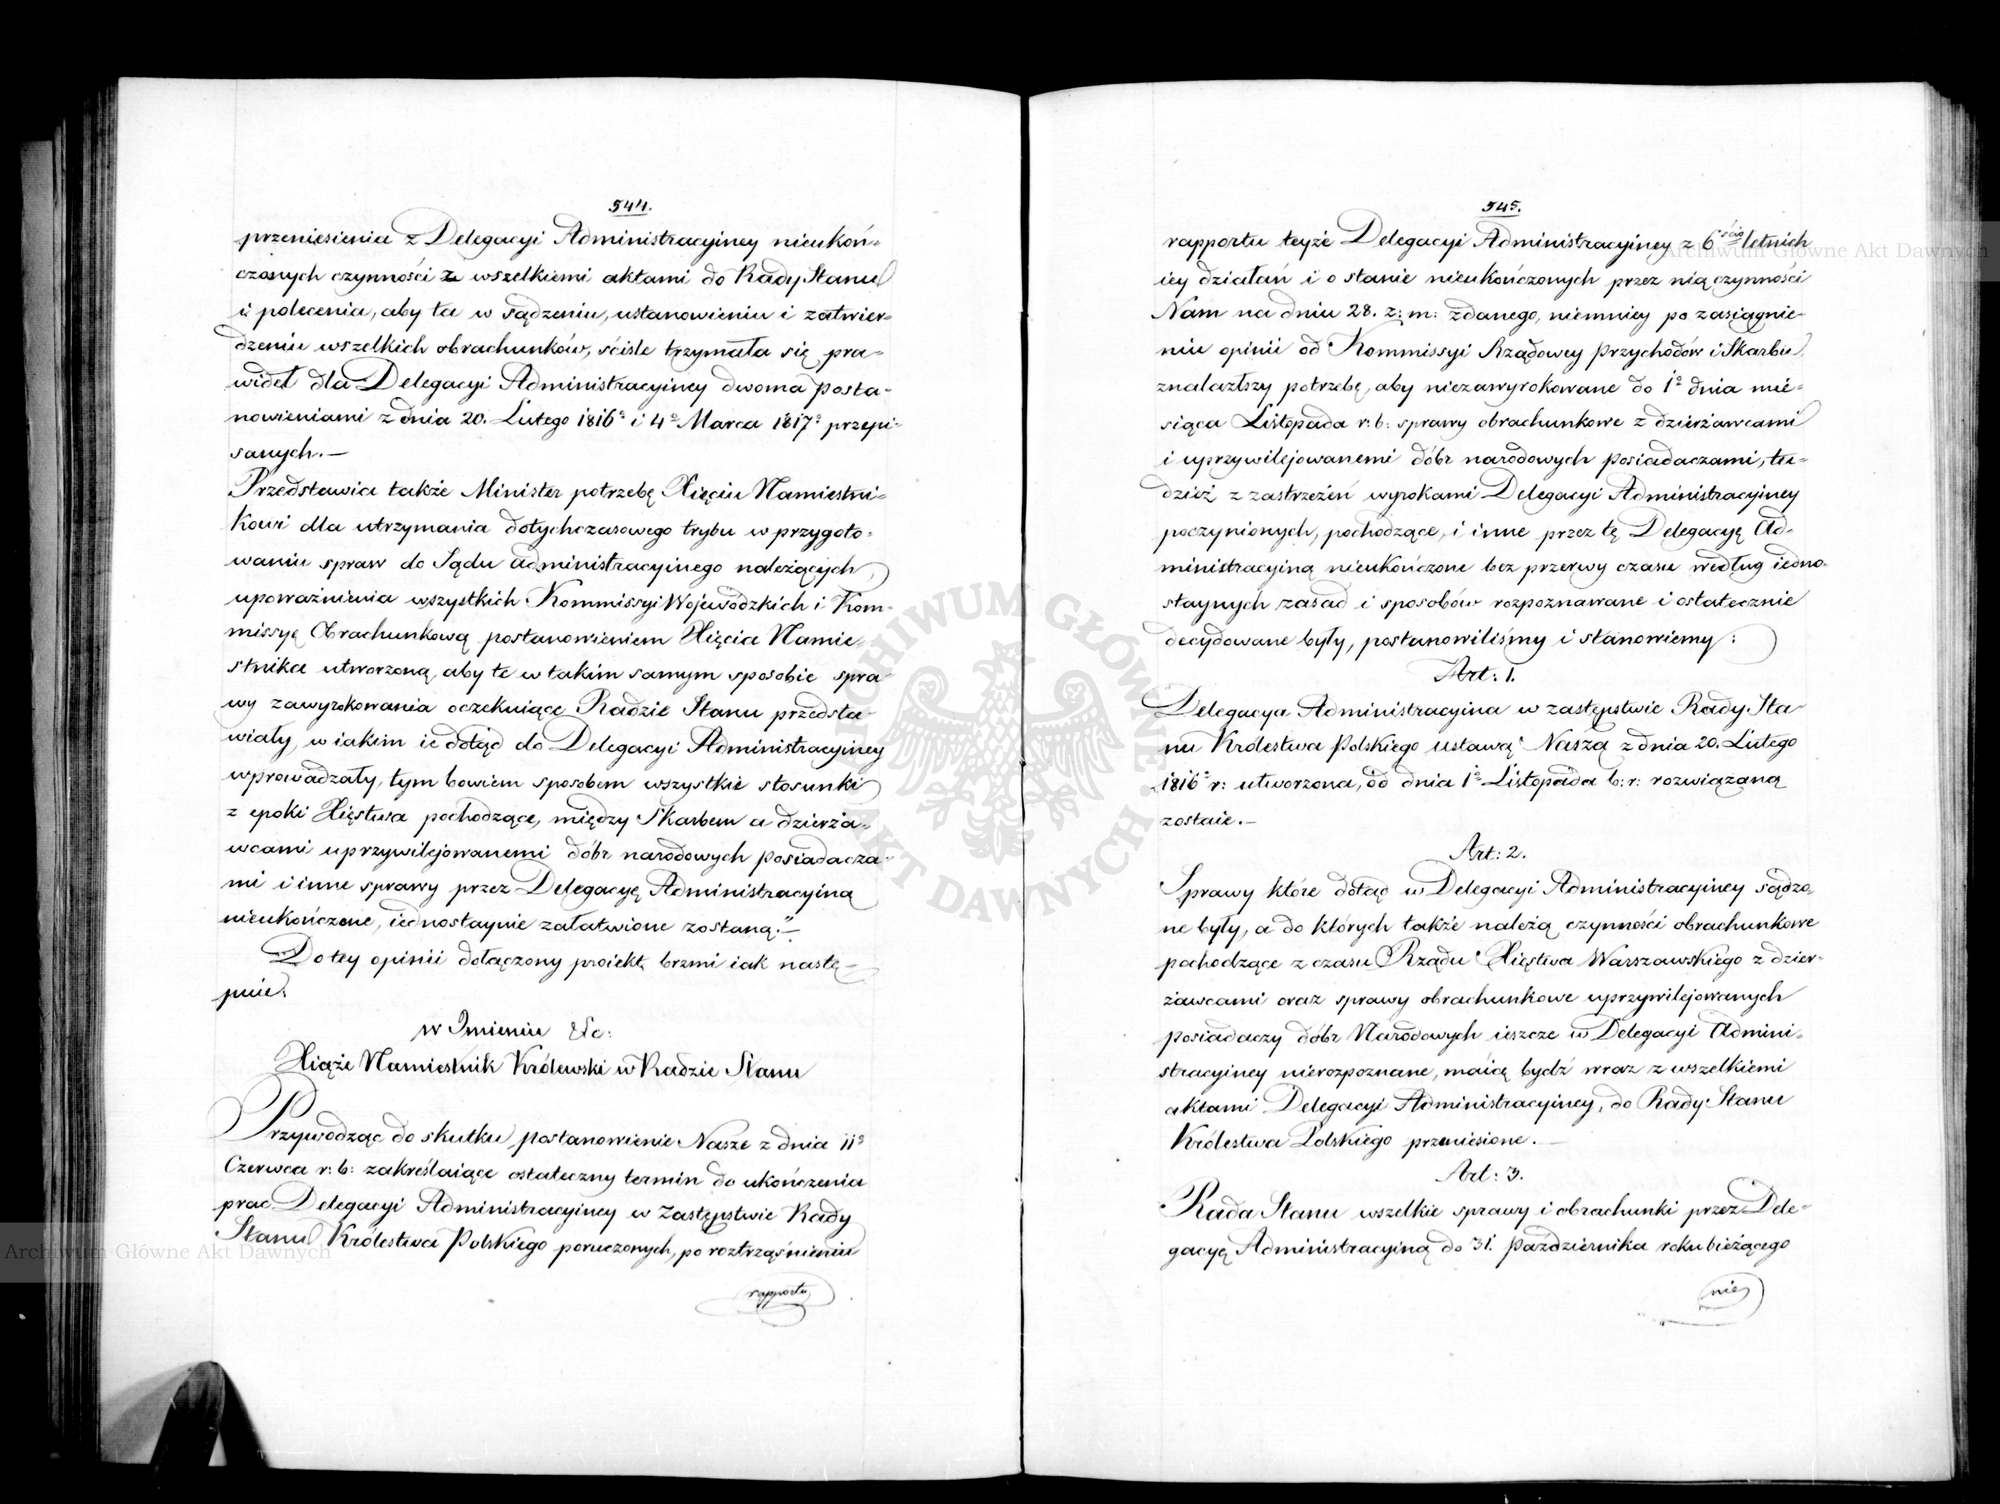 544.
przeniesienia z Delegacyi Administracyiney nieukoń-
czonych czynności z wszelkiemi aktami do Rady Stanu
i polecenia, aby ta w sądzeniu, ustanowieniu i zatwier-
dzeniu wszelkich obrachunków, ściśle trzymała się pra-
wideł dla Delegacyi Administracyiney dwoma posta-
nowieniami z dnia 20. Lutego 1816o i 4o Marca 1817o przepi-
sanych.—
Przedstawia także Minister potrzebę Xięciu Namiestni-
kowi dla utrzymania dotychczasowego trybu w przygoto-
waniu spraw do Sądu administracyinego należących,
upoważnienia wszystkich Kommissyi Wojewódzkich i Kom-
missyę Obrachunkową postanowieniem Xięcia Namie-
stnika utworzoną, aby te w takim samym sposobie spra-
wy zawyrokowania oczekuiące Radzie Stanu przedsta-
wiały, w iakim ie dotąd do Delegacyi Administracyiney
wprowadzały, tym bowiem sposobem wszystkie stosunki
z epoki Xięstwa pochodzące, między Skarbem a dzierża-
wcami uprzywilejowanemi dóbr narodowych posiadacza-
mi i inne sprawy przez Delegacyę Administracyiną
nieukończone, iednostaynie załatwione zostaną."—
Do tey opinii dołączony proiekt brzmi iak nastę-
puie.
w Imieniu &c:
Xiąże Namiestnik Królewski w Radzie Stanu
Przywodząc do skutku postanowienie Nasze z dnia 11o
Czerwca r. b: zakreślaiące ostateczny termin do ukończenia
prac Delegacyi Administracyiney w Zastępstwie Rady
Stanu Królestwa Polskiego poruczonych, po roztrząśnieniu
rapportu
545.
rapportu teyże Delegacyi Administracyiney z 6ścio letnich
iey działań i o stanie nieukończonych przez nią czynności
Nam na dniu 28. z: m: zdanego, niemniey po zasiągnie-
niu opinii od Kommissyi Rządowey Przychodów i Skarbu,
znalazłszy potrzebę, aby niezawyrokowane do 1o dnia mie-
siąca Listopada r. b: sprawy obrachunkowe z dzierżawcami
i uprzywilejowanemi dóbr narodowych posiadaczami, tu-
dzież z zastrzeżeń wyrokami Delegacyi Administracyiney
poczynionych, pochodzące, i inne przez tę Delegacyę Ad-
ministracyiną nieukończone bez przerwy czasu według iedno-
staynych zasad i sposobów rozpoznawane i ostatecznie
decydowane były, postanowiliśmy i stanowiemy:
Art: 1.
Delegacya Administracyina w zastępstwie Rady Sta-
nu Królestwa Polskiego ustawą Naszą z dnia 20. Lutego
1816o r: utworzona, od dnia 1o Listopada b: r: rozwiązaną
zostaie.—
Art: 2.
Sprawy które dotąd w Delegacyi Administracyiney sądzo-
ne były, a do których także należą czynności obrachunkowe
pochodzące z czasu Rządu Xięstwa Warszawskiego z dzier-
żawcami oraz sprawy obrachunkowe uprzywilejowanych
posiadaczy dóbr Narodowych ieszcze w Delegacyi Admini-
stracyiney nierozpoznane, maią bydź wraz z wszelkiemi
aktami Delegacyi Administracyiney, do Rady Stanu
Królestwa Polskiego przeniesione.—
Art: 3.
Rada Stanu wszelkie sprawy i obrachunki przez Dele-
gacyę Administracyiną do 31. Października roku bieżącego
nie
Archiwum Główne Akt Dawnych
Archiwum Główne Akt Dawnych
ARCHIWUM GŁÓWNE AKT DAWNYCH